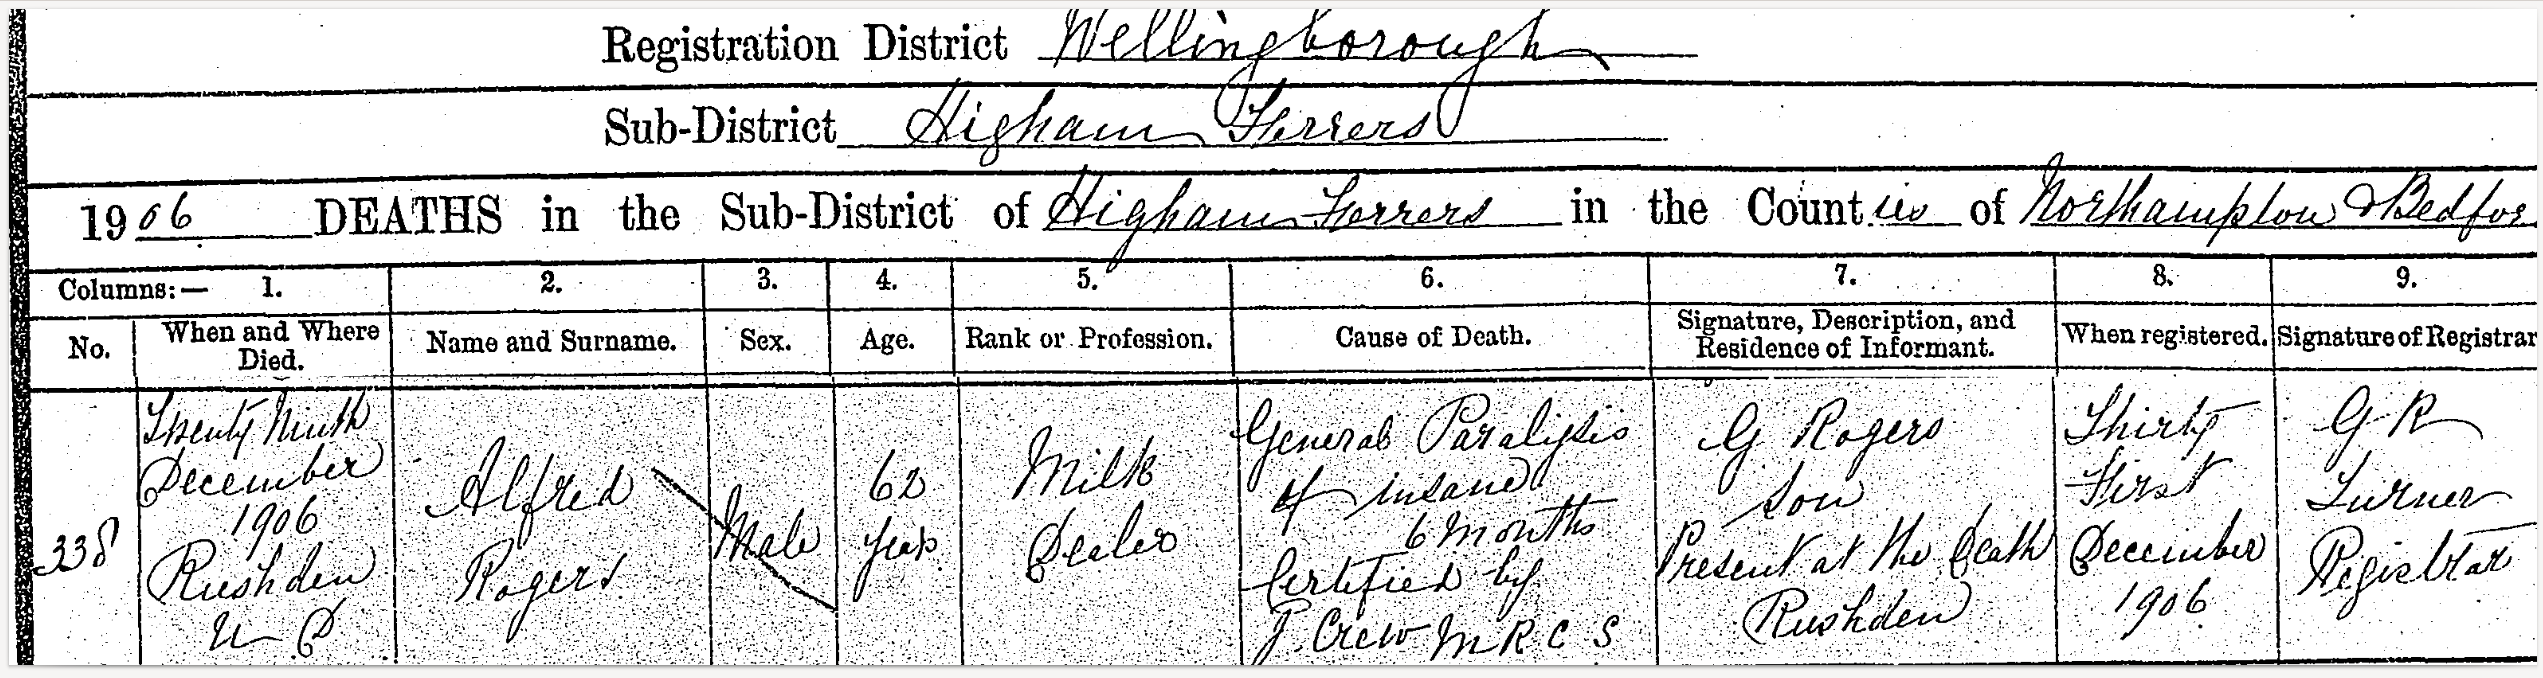 Registration District Wellingborough
Sub-District Higham Ferrers
1906 DEATHS in the Sub-District of Higham Ferrers in the Counties of Northampton & Bedfor
Columns:— 1. 2. 3. 4. 5. 6. 7. 8. 9.
No.
When and Where
Died.
Name and Surname.
Sex.
Age.
Rank or Profession.
Cause of Death.
Signature, Description, and
Residence of Informant.
When registered.
Signature of Registrar
338
Twenty Ninth
December
1906
Rushden
U D
Alfred
Rogers
Male
62
years
Milk
Dealer
General Paralysis
of insane
6 months
Certified by
J. Crew MRCS
G Rogers
Son
Present at the death
Rushden
Thirty
First
December
1906
G R
Turner
Registrar